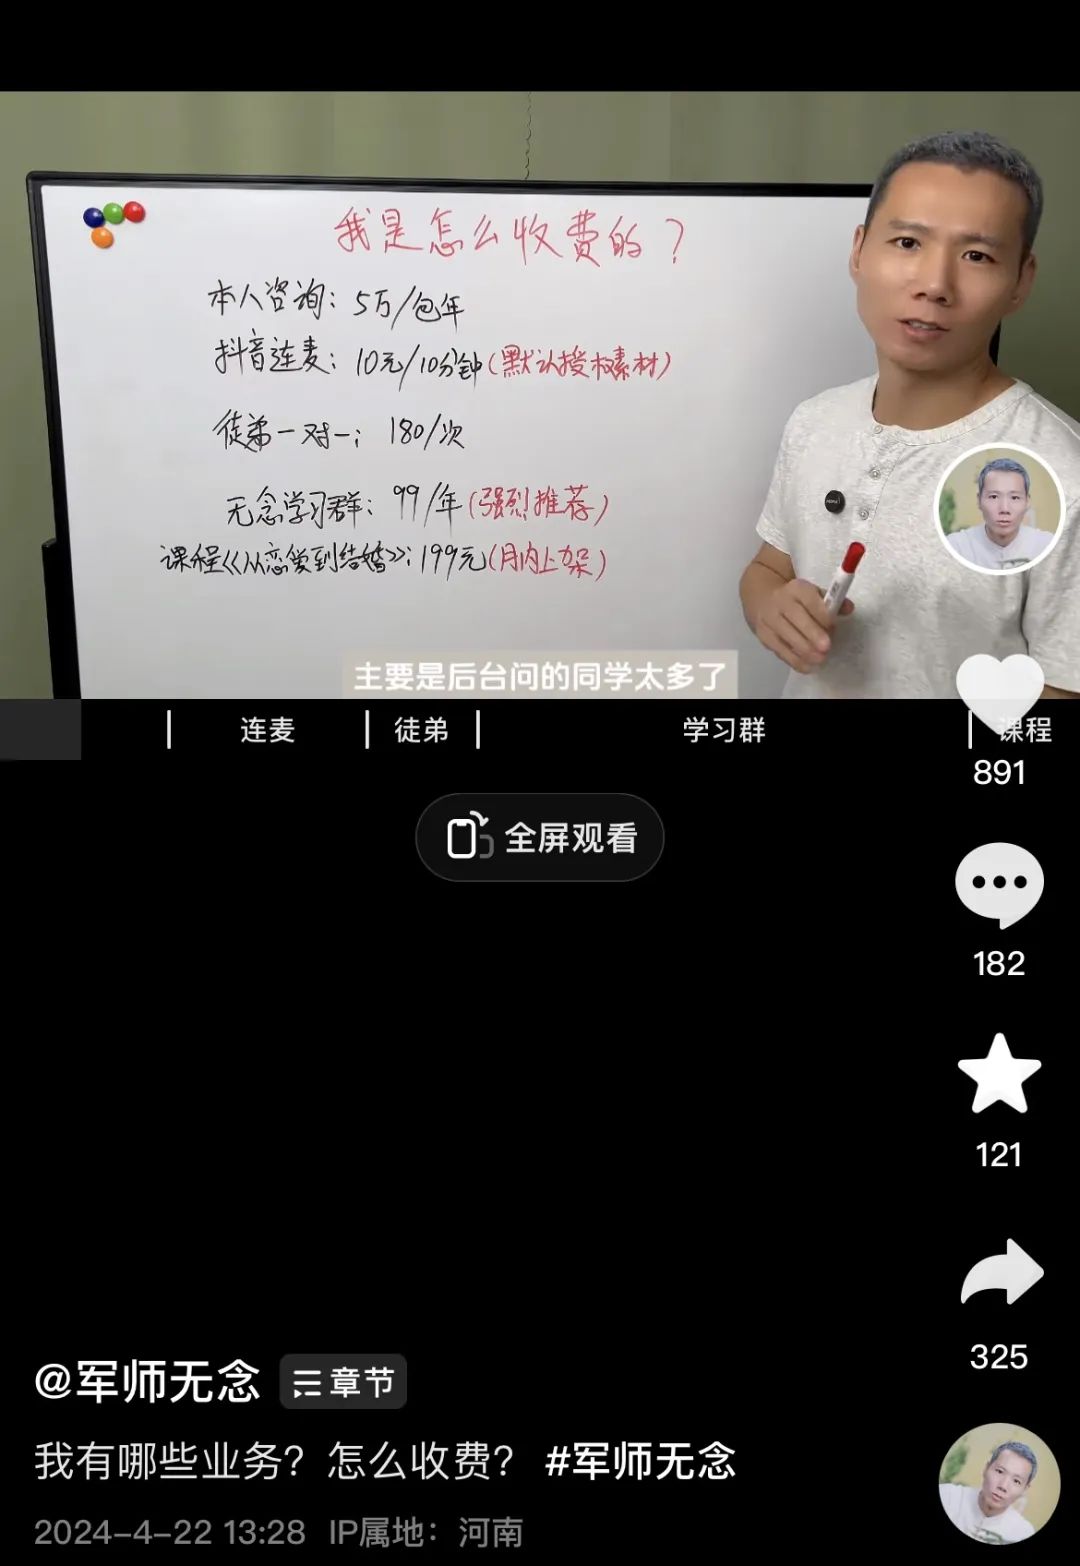 我是怎么收费的？
本人咨询：5万/包年
抖音连麦：10元/10分钟(默认授权素材)
徒弟一对一：180/次
无念学习群：99/年(强烈推荐)
课程《从恋爱到结婚》：199元(月内上架)
主要是后台问的同学太多了
连麦
徒弟
学习群
课程
891
全屏观看
182
121
325
@军师无念 章节
我有哪些业务？怎么收费？ #军师无念
2024-4-22 13:28 IP属地：河南